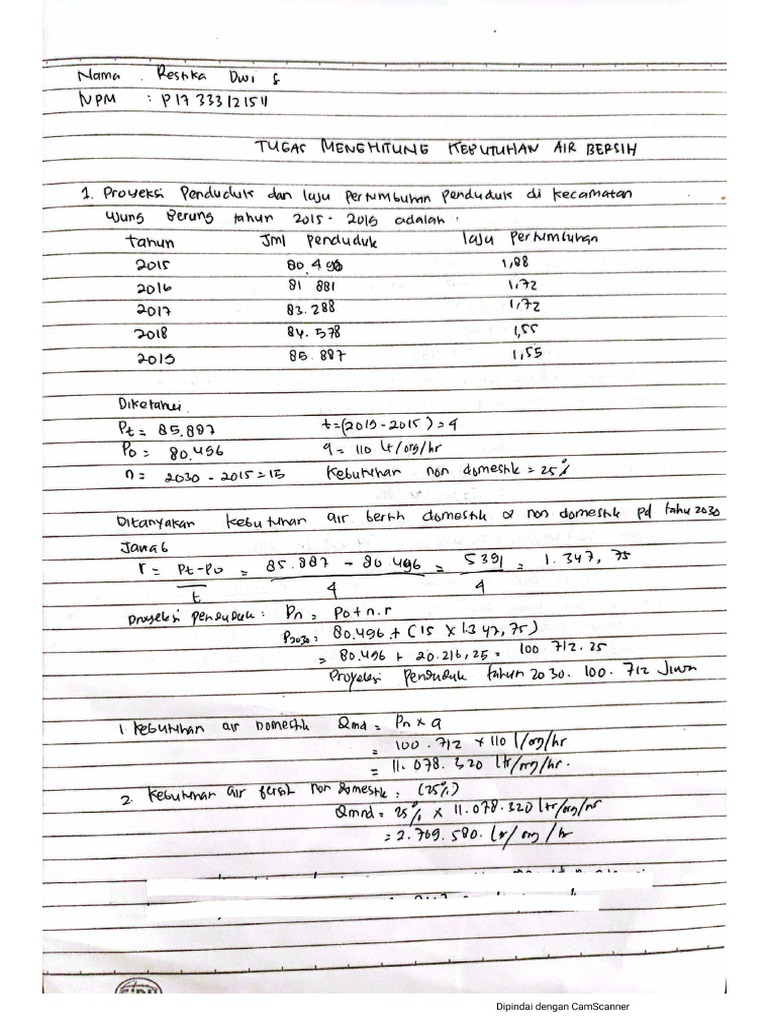 Nama : Restika Dwi S
NPM : P17333121511
TUGAS MENGHITUNG KEBUTUHAN AIR BERSIH
1. Proyeksi Penduduk dan laju pertumbuhan penduduk di kecamatan
Ujung Berung tahun 2015 - 2019 adalah :
tahun Jml penduduk laju Pertumbuhan
2015 80.496 1,88
2016 81 881 1,72
2017 83.288 1,72
2018 84.578 1,55
2019 85.887 1,55
Diketahui
Pt = 85.887 t = (2019 - 2015) = 4
Po = 80.496 q = 110 lt/org/hr
n = 2030 - 2015 = 15 Kebutuhan non domestik = 25%
Ditanyakan kebutuhan air bersih domestik & non domestik pd tahu 2030
Jawab
r = Pt - Po / t = 85.887 - 80.496 / 4 = 5391 / 4 = 1.347, 75
Proyeksi penduduk : Pn = Po + n.r
P2030 = 80.496 + (15 x 1.347,75)
= 80.496 + 20.216,25 = 100.712.25
Proyeksi Penduduk tahun 2030. 100.712 Jiwa
1. Kebutuhan air Domestik Qmd = Pn x q
= 100.712 x 110 l/org/hr
= 11.078.320 ltr/org/hr.
2. Kebutuhan air bersih non domestik : (25%)
Qmnd = 25% x 11.078.320 ltr/org/hr
= 2.769.580. ltr/org/hr
SIDU
Dipindai dengan CamScanner